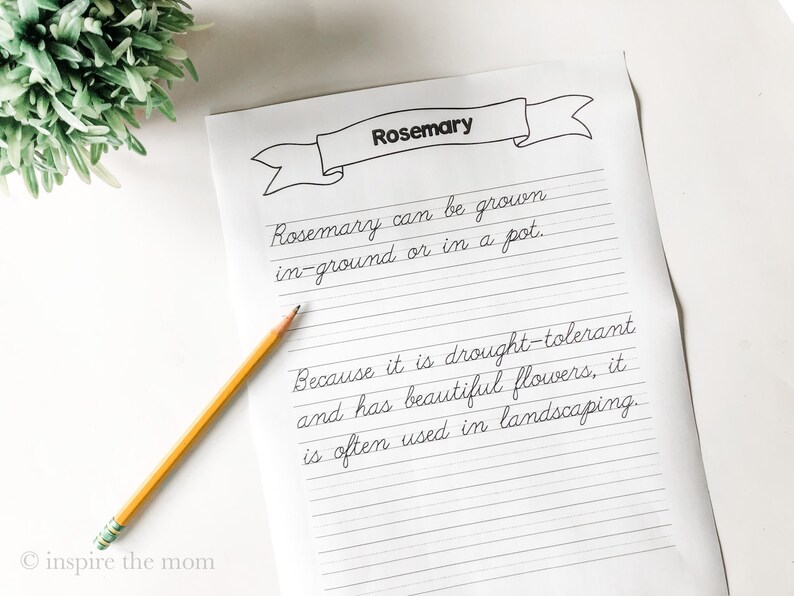 Rosemary
Rosemary can be grown
in-ground or in a pot.
Because it is drought-tolerant
and has beautiful flowers, it
is often used in landscaping.
© inspire the mom